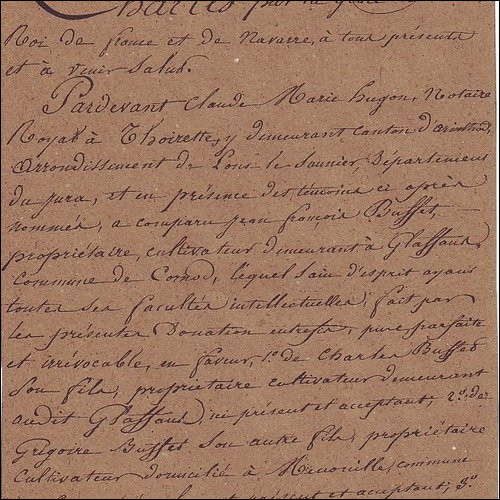 Charles par la grace
Roi de france et de Navarre, à tous présents
et à venir Salut.
Pardevant Claude Marie hugon, Notaire
Royal à Thoirette, y demeurant Canton d'arinthod,
Arrondissement de Lons le Saunier, Département
du jura, et en présence des témoins ci après
nommés, a comparu jean françois Buffet,
propriétaire, cultivateur demeurant à Glaffaud,
Commune de Cornod, lequel Sain d'esprit ayant
toutes Ses facultés intellectuelles, fait par
les présentes Donation entrevifs, pure parfaite
et irrévocable, en faveur, 1°. de Charles Buffet
Son fils, propriétaire cultivateur demeurant
audit Glaffaud, ici présent et acceptant; 2°. de
Grégoire Buffet Son autre fils, propriétaire
Cultivateur domicilié à commune
présent et acceptant; 3°.